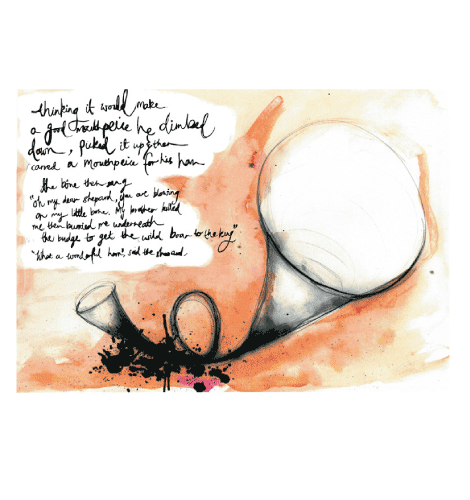 thinking it would make
a good mouthpeice he climbed
down, picked it up & then
carved a mouthpeice for his horn
the bone then sang
"oh my dear shepard, you are blowing
on my little bone. My brother killed
me then burried me underneath
the bridge to get the wild boar to the king"
"What a wonderful horn", said the shepard.